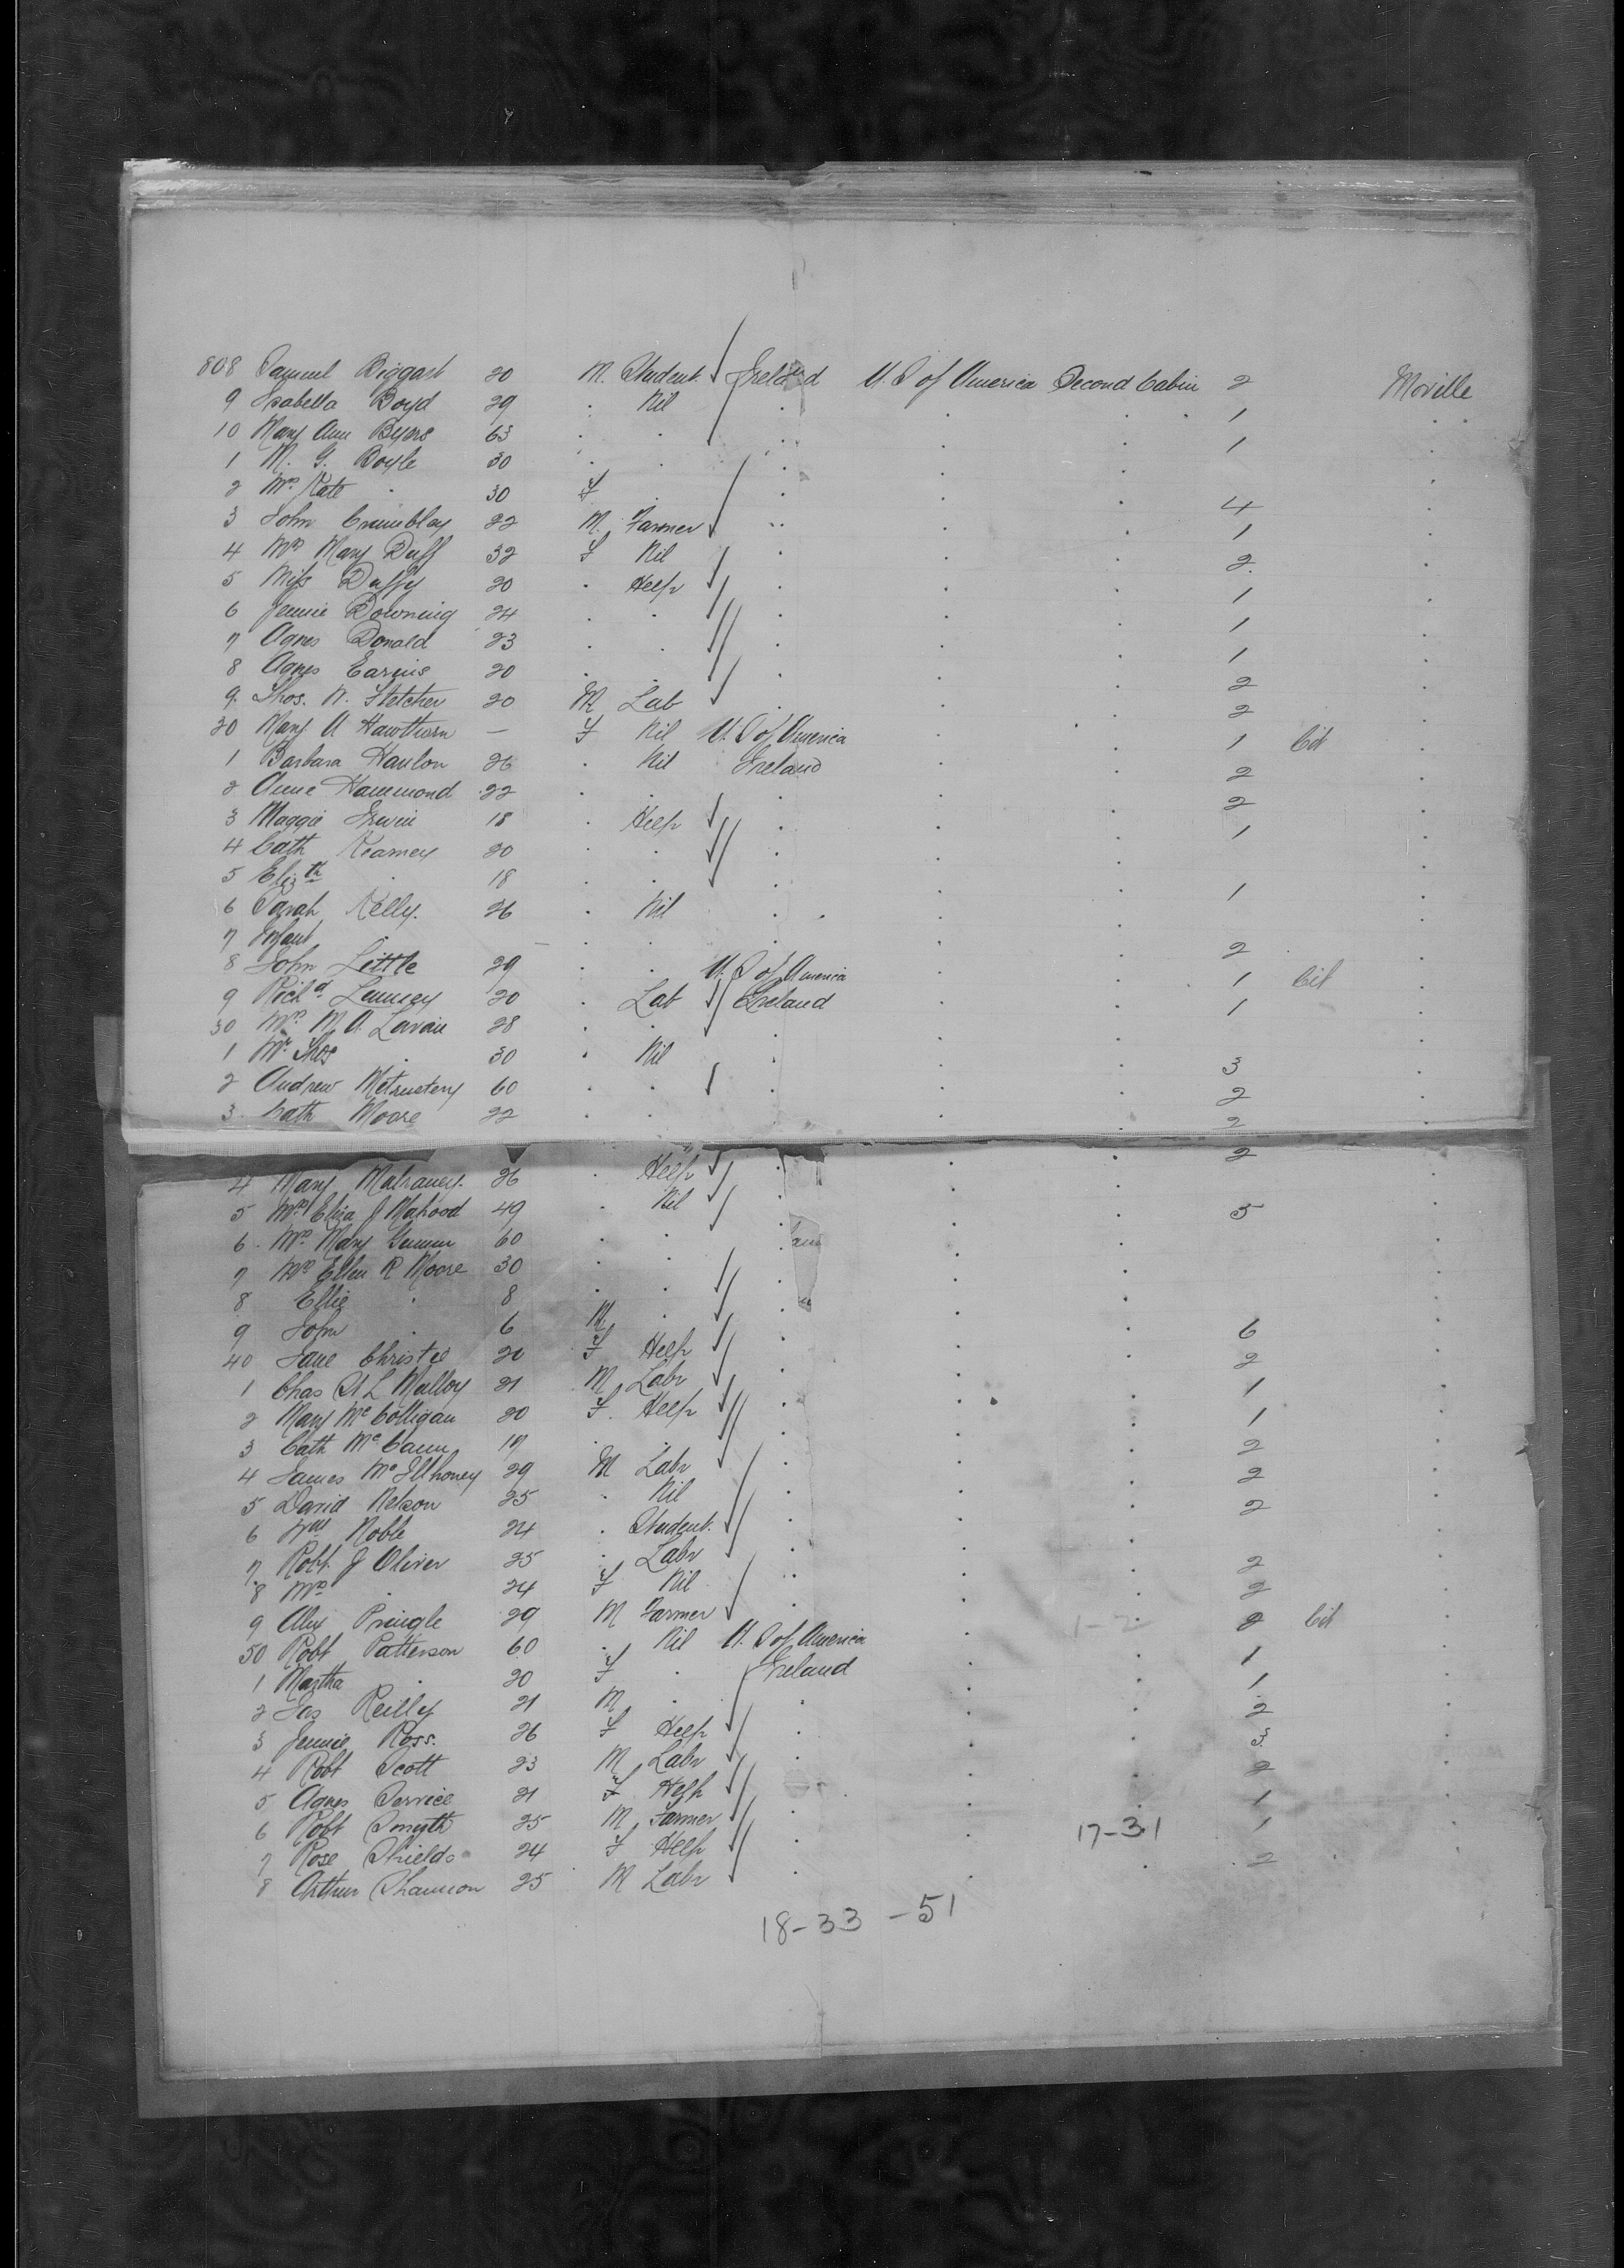 808 Samuel Biggart 20 M. Student. Ireland U.S of America Second Cabin 2 Moville
9 Isabella Boyd 29 . Nil . . . 1 . .
10 Mary Ann Byers 63 . . . . . 1
1 M. G. Boyle 30 . . . . . .
2 Mrs Kate . 30 F . . . . 4 .
3 John Crumblay 22 M. Farmer . . . 1 .
4 Mrs Mary Duff 32 F Nil . . . 2 .
5 Miss Duffy 20 . Help . . . 1 .
6 Jennie Downing 24 . . . . . 1 .
7 Agnes Donald 23 . . . . . 1 .
8 Agnes 20 . . . . . 2 .
9. Thos. W. Fletcher 20 M Lab . . . 2 .
20 Mary A Hawthorn — F Nil U.S of America . . 1 Cit .
1 Barbara Hanlon 26 . Nil Ireland . . 2 .
2 Annie Hammond 22 . . . . . 2 .
3 Maggie Irwin 18 . Help . . . 1 .
4 Cath Kearney 20 . . . . . .
5 Elizth . 18 . . . . . 1 .
6 Sarah Kelly. 26 . Nil . . . .
7 Infant . — . . . . . 2 .
8 John Little 29 . . U.S of America . . 1 Cit .
9 Richd 20 . Lab Ireland . . 1 .
30 Mrs. M.A. 28 . . . . . .
1 Mr Thos . 30 . Nil . . . 3 .
2 Andrew 60 . . . . . 2 .
3. Cath Moore 22 . . . . . 2 .
4 Mary 26 . Help . . . 2 .
5 Mrs Eliza J Mahood 49 . Nil . . . 5 .
6. Mrs. Mary 60 . . . . . .
7 Mrs Ellen R Moore 30 . . . . . .
8 Ellie . 8 . . . . . .
9 John . 6 M . . . . 6 .
40 Jane Christie 20 F Help . . . 2 .
1 Chas Malloy 21 M Labr . . . 1 .
2 Mary McColligan 20 F. Help . . . 1 .
3 Cath McCann 19 . . . . . 2 .
4 James 29 M Labr . . . 2 .
5 David Nelson 25 . Nil . . . 2 .
6 Wm Noble 24 . Student. . . . .
7 Robt. J Oliver 25 . Labr . . . 2 .
8 Mrs . 24 F Nil . . . 2 .
9 Alex Pringle 29 M Farmer . 1-2 . 2 Cit .
50 Robt Patterson 60 . Nil U.S of America . . 1 .
1 Martha . 20 F . Ireland . . 1 .
2 Jas Reilly 21 M . . . . 2 .
3 Jennie Ross. 26 F Help . . . 3 .
4 Robt Scott 23 M Labr . . . 2 .
5 Agnes Service 21 F Help . . . 1 .
6 Robt Smyth 25 M Farmer . . 17-31 1 .
7 Rose Shields 24 F Help . . . 2 .
8 Arthur Shannon 25 M Labr . .
18-33-51